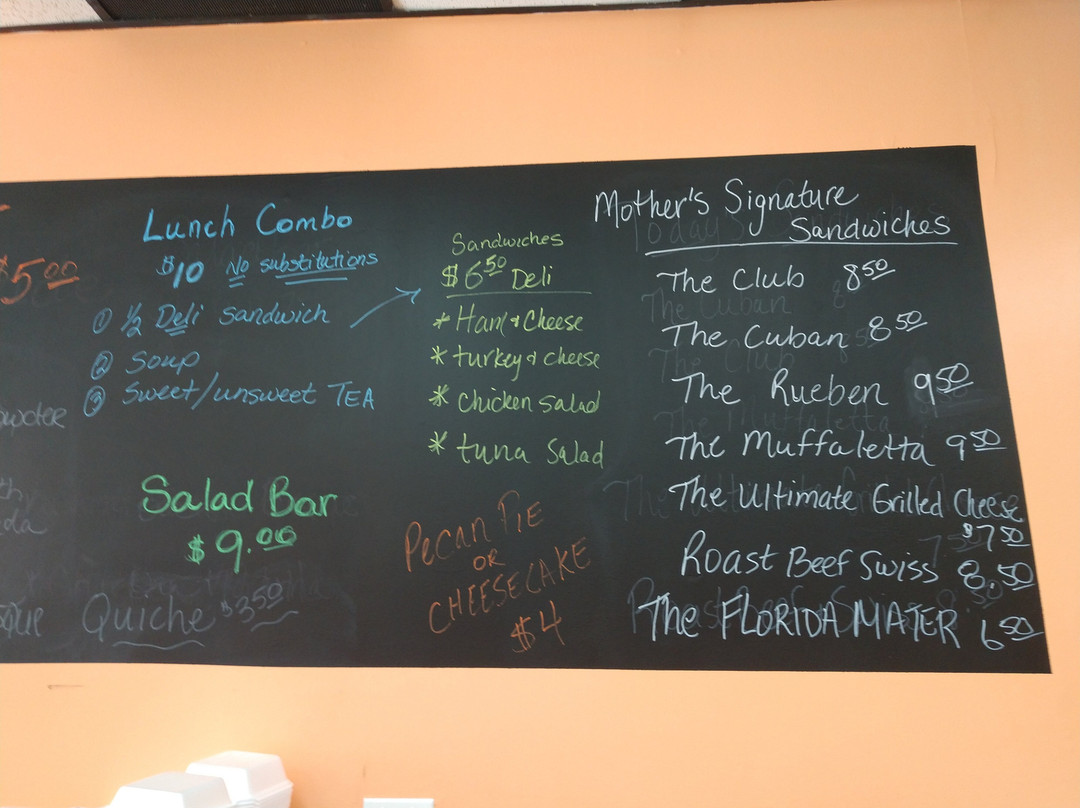 $5.00
Lunch Combo
$10 No substitutions
① 1/2 Deli sandwich
② Soup
③ Sweet/unsweet TEA
Salad Bar
$9.00
Quiche $3.50
Sandwiches
$6.50 Deli
* Ham & Cheese
* turkey & cheese
* chicken salad
* tuna Salad
Pecan PIE
OR
CHEESECAKE
$4
Mother's Signature
Sandwiches
The Club 8.50
The Cuban 8.50
The Rueben 9.50
The Muffaletta 9.50
The Ultimate Grilled Cheese
$7.50
Roast Beef Swiss 8.50
The FLORIDA MATER 6.50